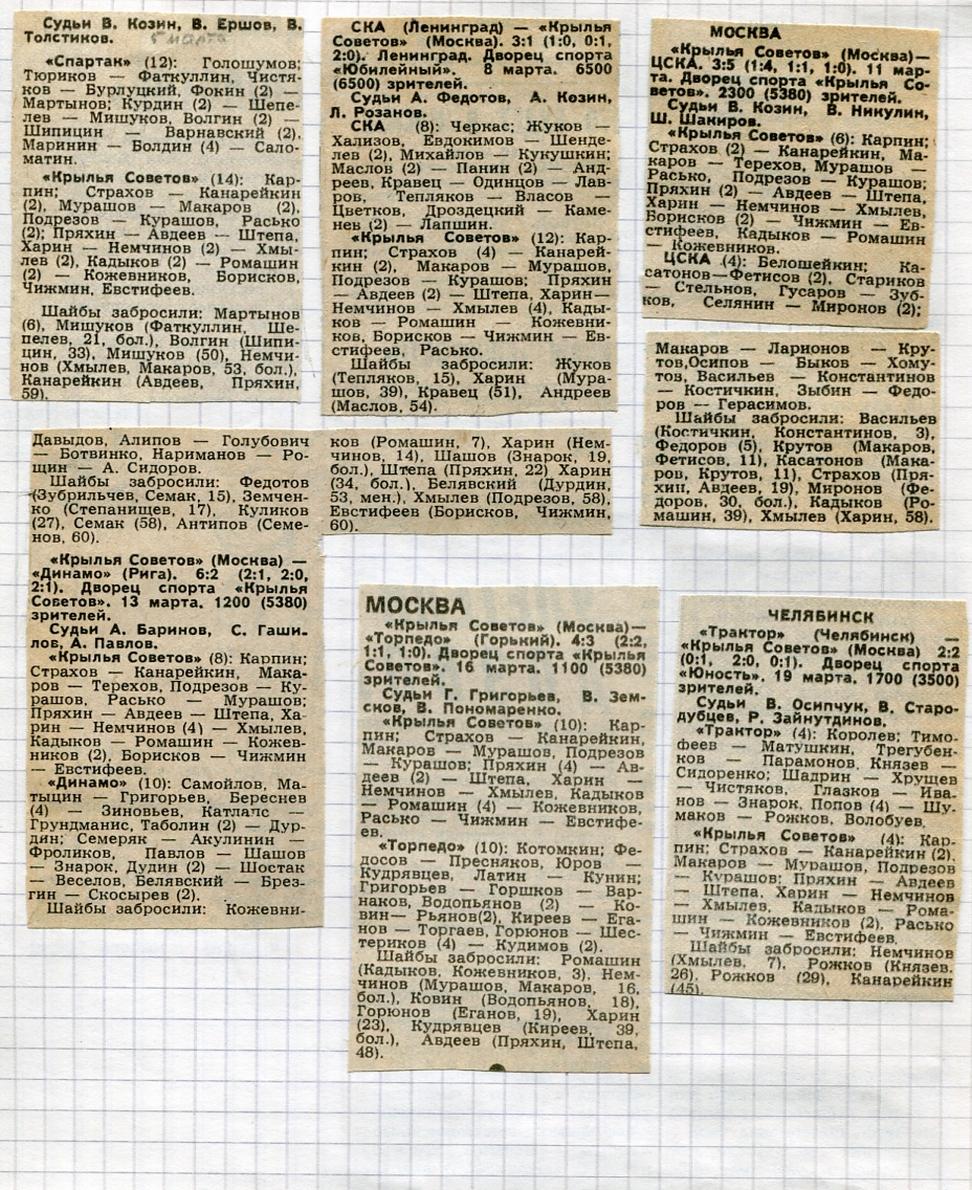 Судьи В. Козин, В. Ершов, В.
Толстиков. 5 марта
«Спартак» (12): Голошумов;
Тюриков — Фаткуллин, Чистя-
ков — Бурлуцкий, Фокин (2) —
Мартынов; Курдин (2) — Шепе-
лев — Мишуков, Волгин (2) —
Шипицин — Варнавский (2),
Маринин — Болдин (4) — Сало-
матин.
«Крылья Советов» (14): Кар-
пин; Страхов — Канарейкин
(2), Мурашов — Макаров (2),
Подрезов — Курашов, Расько
(2); Пряхин — Авдеев — Штепа,
Харин — Немчинов (2) — Хмы-
лев (2), Кадыков (2) — Ромашин
(2) — Кожевников, Борисков,
Чижмин, Евстифеев.
Шайбы забросили: Мартынов
(6), Мишуков (Фаткуллин, Ше-
пелев, 21, бол.), Волгин (Шипи-
цин, 33), Мишуков (50), Немчи-
нов (Хмылев, Макаров, 53, бол.),
Канарейкин (Авдеев, Пряхин,
59).
СКА (Ленинград) — «Крылья
Советов» (Москва). 3:1 (1:0, 0:1,
2:0). Ленинград. Дворец спорта
«Юбилейный». 8 марта. 6500
(6500) зрителей.
Судьи А. Федотов, А. Козин,
Л. Розанов.
СКА (8): Черкас; Жуков —
Хализов, Евдокимов — Шенде-
лев (2), Михайлов — Кукушкин;
Маслов (2) — Панин (2) — Анд-
реев, Кравец — Одинцов — Лав-
ров, Тепляков — Власов —
Цветков, Дроздецкий — Каме-
нев (2) — Лапшин.
«Крылья Советов» (12): Кар-
пин; Страхов (4) — Канарей-
кин (2), Макаров — Мурашов,
Подрезов — Курашов; Пряхин
— Авдеев (2) — Штепа, Харин—
Немчинов — Хмылев (4), Кады-
ков — Ромашин — Кожевни-
ков, Борисков — Чижмин — Ев-
стифеев, Расько.
Шайбы забросили: Жуков
(Тепляков, 15), Харин (Мура-
шов, 39), Кравец (51), Андреев
(Маслов, 54).
МОСКВА
«Крылья Советов» (Москва)—
ЦСКА. 3:5 (1:4, 1:1, 1:0). 11 мар-
та. Дворец спорта «Крылья Со-
ветов». 2300 (5380) зрителей.
Судьи В. Козин, В. Никулин,
Ш. Шакиров.
«Крылья Советов» (6): Карпин;
Страхов (2) — Канарейкин, Ма-
каров — Терехов, Мурашов —
Расько, Подрезов — Курашов;
Пряхин (2) — Авдеев — Штепа,
Харин — Немчинов — Хмылев,
Борисков (2) — Чижмин — Ев-
стифеев, Кадыков — Ромашин
— Кожевников.
ЦСКА (4): Белошейкин; Ка-
сатонов—Фетисов (2), Стариков
— Стельнов, Гусаров — Зуб-
ков, Селянин — Миронов (2);
Макаров — Ларионов — Кру-
тов,Осипов — Быков — Хому-
тов, Васильев — Константинов
— Костичкин, Зыбин — Федо-
ров — Герасимов.
Шайбы забросили: Васильев
(Костичкин, Константинов, 3),
Федоров (5), Крутов (Макаров,
Фетисов, 11), Касатонов (Мака-
ров, Крутов, 11), Страхов (Пря-
хин, Авдеев, 19), Миронов (Фе-
доров, 30, бол.), Кадыков (Ро-
машин, 39), Хмылев (Харин, 58).
Давыдов, Алипов — Голубович
— Ботвинко, Нариманов — Ро-
щин — А. Сидоров.
Шайбы забросили: Федотов
(Зубрильчев, Семак, 15), Земчен-
ко (Степанищев, 17), Куликов
(27), Семак (58), Антипов (Семе-
нов, 60).
«Крылья Советов» (Москва) —
«Динамо» (Рига). 6:2 (2:1, 2:0,
2:1). Дворец спорта «Крылья
Советов». 13 марта. 1200 (5380)
зрителей.
Судьи А. Баринов, С. Гаши-
лов, А. Павлов.
«Крылья Советов» (8): Карпин;
Страхов — Канарейкин, Мака-
ров — Терехов, Подрезов — Ку-
рашов, Расько — Мурашов;
Пряхин — Авдеев — Штепа, Ха-
рин — Немчинов (4) — Хмылев,
Кадыков — Ромашин — Кожев-
ников (2), Борисков — Чижмин
— Евстифеев.
«Динамо» (10): Самойлов, Ма-
тыцин — Григорьев, Береснев
(4) — Зиновьев, Катлапс —
Грундманис, Таболин (2) — Дур-
дин; Семеряк — Акулинин —
Фроликов, Павлов — Шашов
— Знарок, Дудин (2) — Шостак
— Веселов, Белявский — Брез-
гин — Скосырев (2).
Шайбы забросили: Кожевни-
ков (Ромашин, 7), Харин (Нем-
чинов, 14), Шашов (Знарок, 19,
бол.), Штепа (Пряхин, 22) Харин
(34, бол.), Белявский (Дурдин,
53, мен.), Хмылев (Подрезов, 58),
Евстифеев (Борисков, Чижмин,
60).
МОСКВА
«Крылья Советов» (Москва)—
«Торпедо» (Горький). 4:3 (2:2,
1:1, 1:0). Дворец спорта «Крылья
Советов». 16 марта. 1100 (5380)
зрителей.
Судьи Г. Григорьев, В. Зем-
сков, В. Пономаренко.
«Крылья Советов» (10): Кар-
пин; Страхов — Канарейкин,
Макаров — Мурашов, Подрезов
— Курашов; Пряхин (4) — Ав-
деев (2) — Штепа, Харин —
Немчинов — Хмылев, Кадыков
— Ромашин (4) — Кожевников,
Расько — Чижмин — Евстифе-
ев.
«Торпедо» (10): Котомкин; Фе-
досов — Пресняков, Юров —
Кудрявцев, Латин — Кунин;
Григорьев — Горшков — Вар-
наков, Водопьянов (2) — Ко-
вин— Рьянов(2), Киреев — Ега-
нов — Торгаев, Горюнов — Шес-
териков (4) — Кудимов (2).
Шайбы забросили: Ромашин
(Кадыков, Кожевников, 3), Нем-
чинов (Мурашов, Макаров, 16,
бол.), Ковин (Водопьянов, 18),
Горюнов (Еганов, 19), Харин
(23), Кудрявцев (Киреев, 39,
бол.), Авдеев (Пряхин, Штепа,
48).
ЧЕЛЯБИНСК
«Трактор» (Челябинск) —
«Крылья Советов» (Москва) 2:2
(0:1, 2:0, 0:1). Дворец спорта
«Юность». 19 марта. 1700 (3500)
зрителей.
Судьи В. Осипчук, В. Старо-
дубцев, Р. Зайнутдинов.
«Трактор» (4): Королев; Тимо-
феев — Матушкин, Трегубен-
ков — Парамонов, Князев —
Сидоренко; Шадрин — Хрущев
— Чистяков, Глазков — Ива-
нов — Знарок, Попов (4) — Шу-
маков — Рожков, Волобуев.
«Крылья Советов» (4): Кар-
пин; Страхов — Канарейкин (2),
Макаров — Мурашов, Подрезов
— Курашов; Пряхин — Авдеев
— Штепа, Харин — Немчинов
— Хмылев, Кадыков — Рома-
шин — Кожевников (2), Расько
— Чижмин — Евстифеев.
Шайбы забросили: Немчинов
(Хмылев, 7), Рожков (Князев,
26), Рожков (29), Канарейкин
(45).